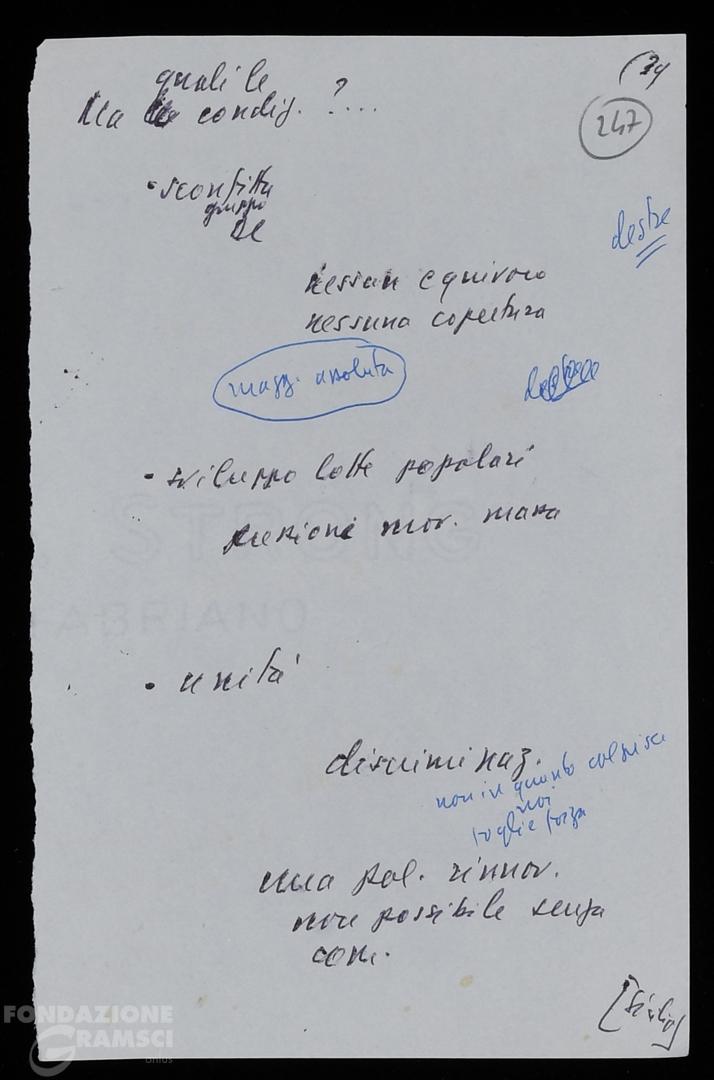 (34
247
quali le
Ma condiz. ?....
• sconfitta
gruppo
DC
destre
nessun equivoco
nessuna copertura
magg. assoluta
• sviluppo lotte popolari
pressione mov. massa
• unità
discriminaz.
non in quanto colpisce
noi
toglie forza
una pol. rinnov.
non possibile senza
com.
STRONG
FABRIANO
FONDAZIONE
GRAMSCI
onlus